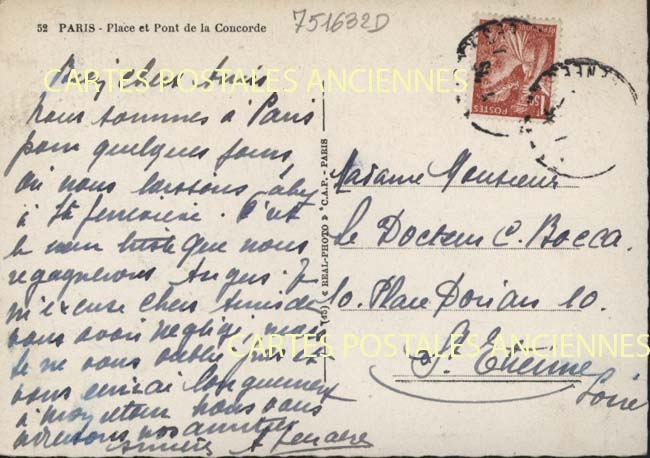 52 PARIS - Place et Pont de la Concorde
751632D
CARTES POSTALES ANCIENNES
chers Amis
nous sommes à Paris
pour quelques jours,
où nous laissons
à Ste Geneviève. C'est
le que nous
regagnerons Angers. Je
m'excuse chers Amis de
vous avoir négligé, mais
je ne vous oublie pas
vous écrirai longuement
à mon retour nous vous
adressons nos amitiés
"REAL-PHOTO" C.A.P. - PARIS
POSTES
Madame Monsieur
Le Docteur C. Bocca.
10. Place Dorian 10.
CARTES POSTALES ANCIENNES
à St. Etienne
Loire